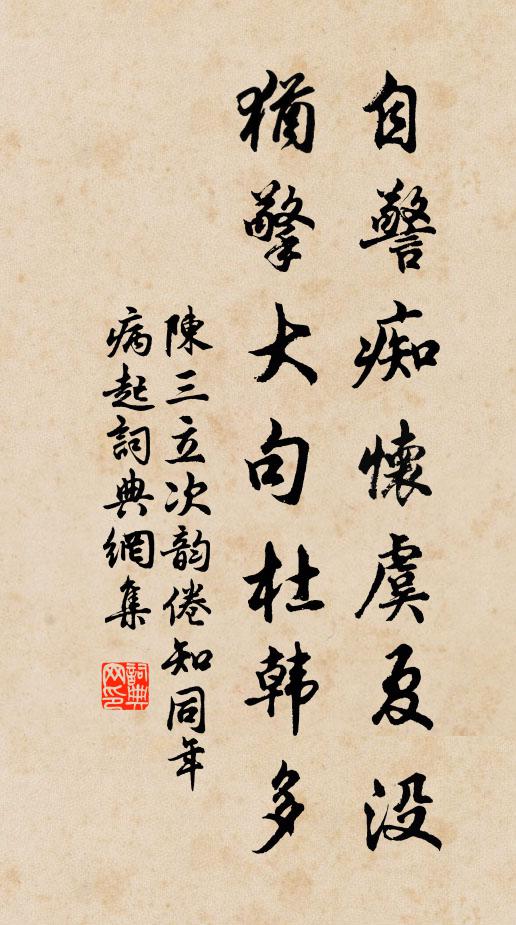 自警痴懷虞夏没
猶擎大句杜韩多
陳三立次韵倦知同年
病起詞典網集
詞典网印